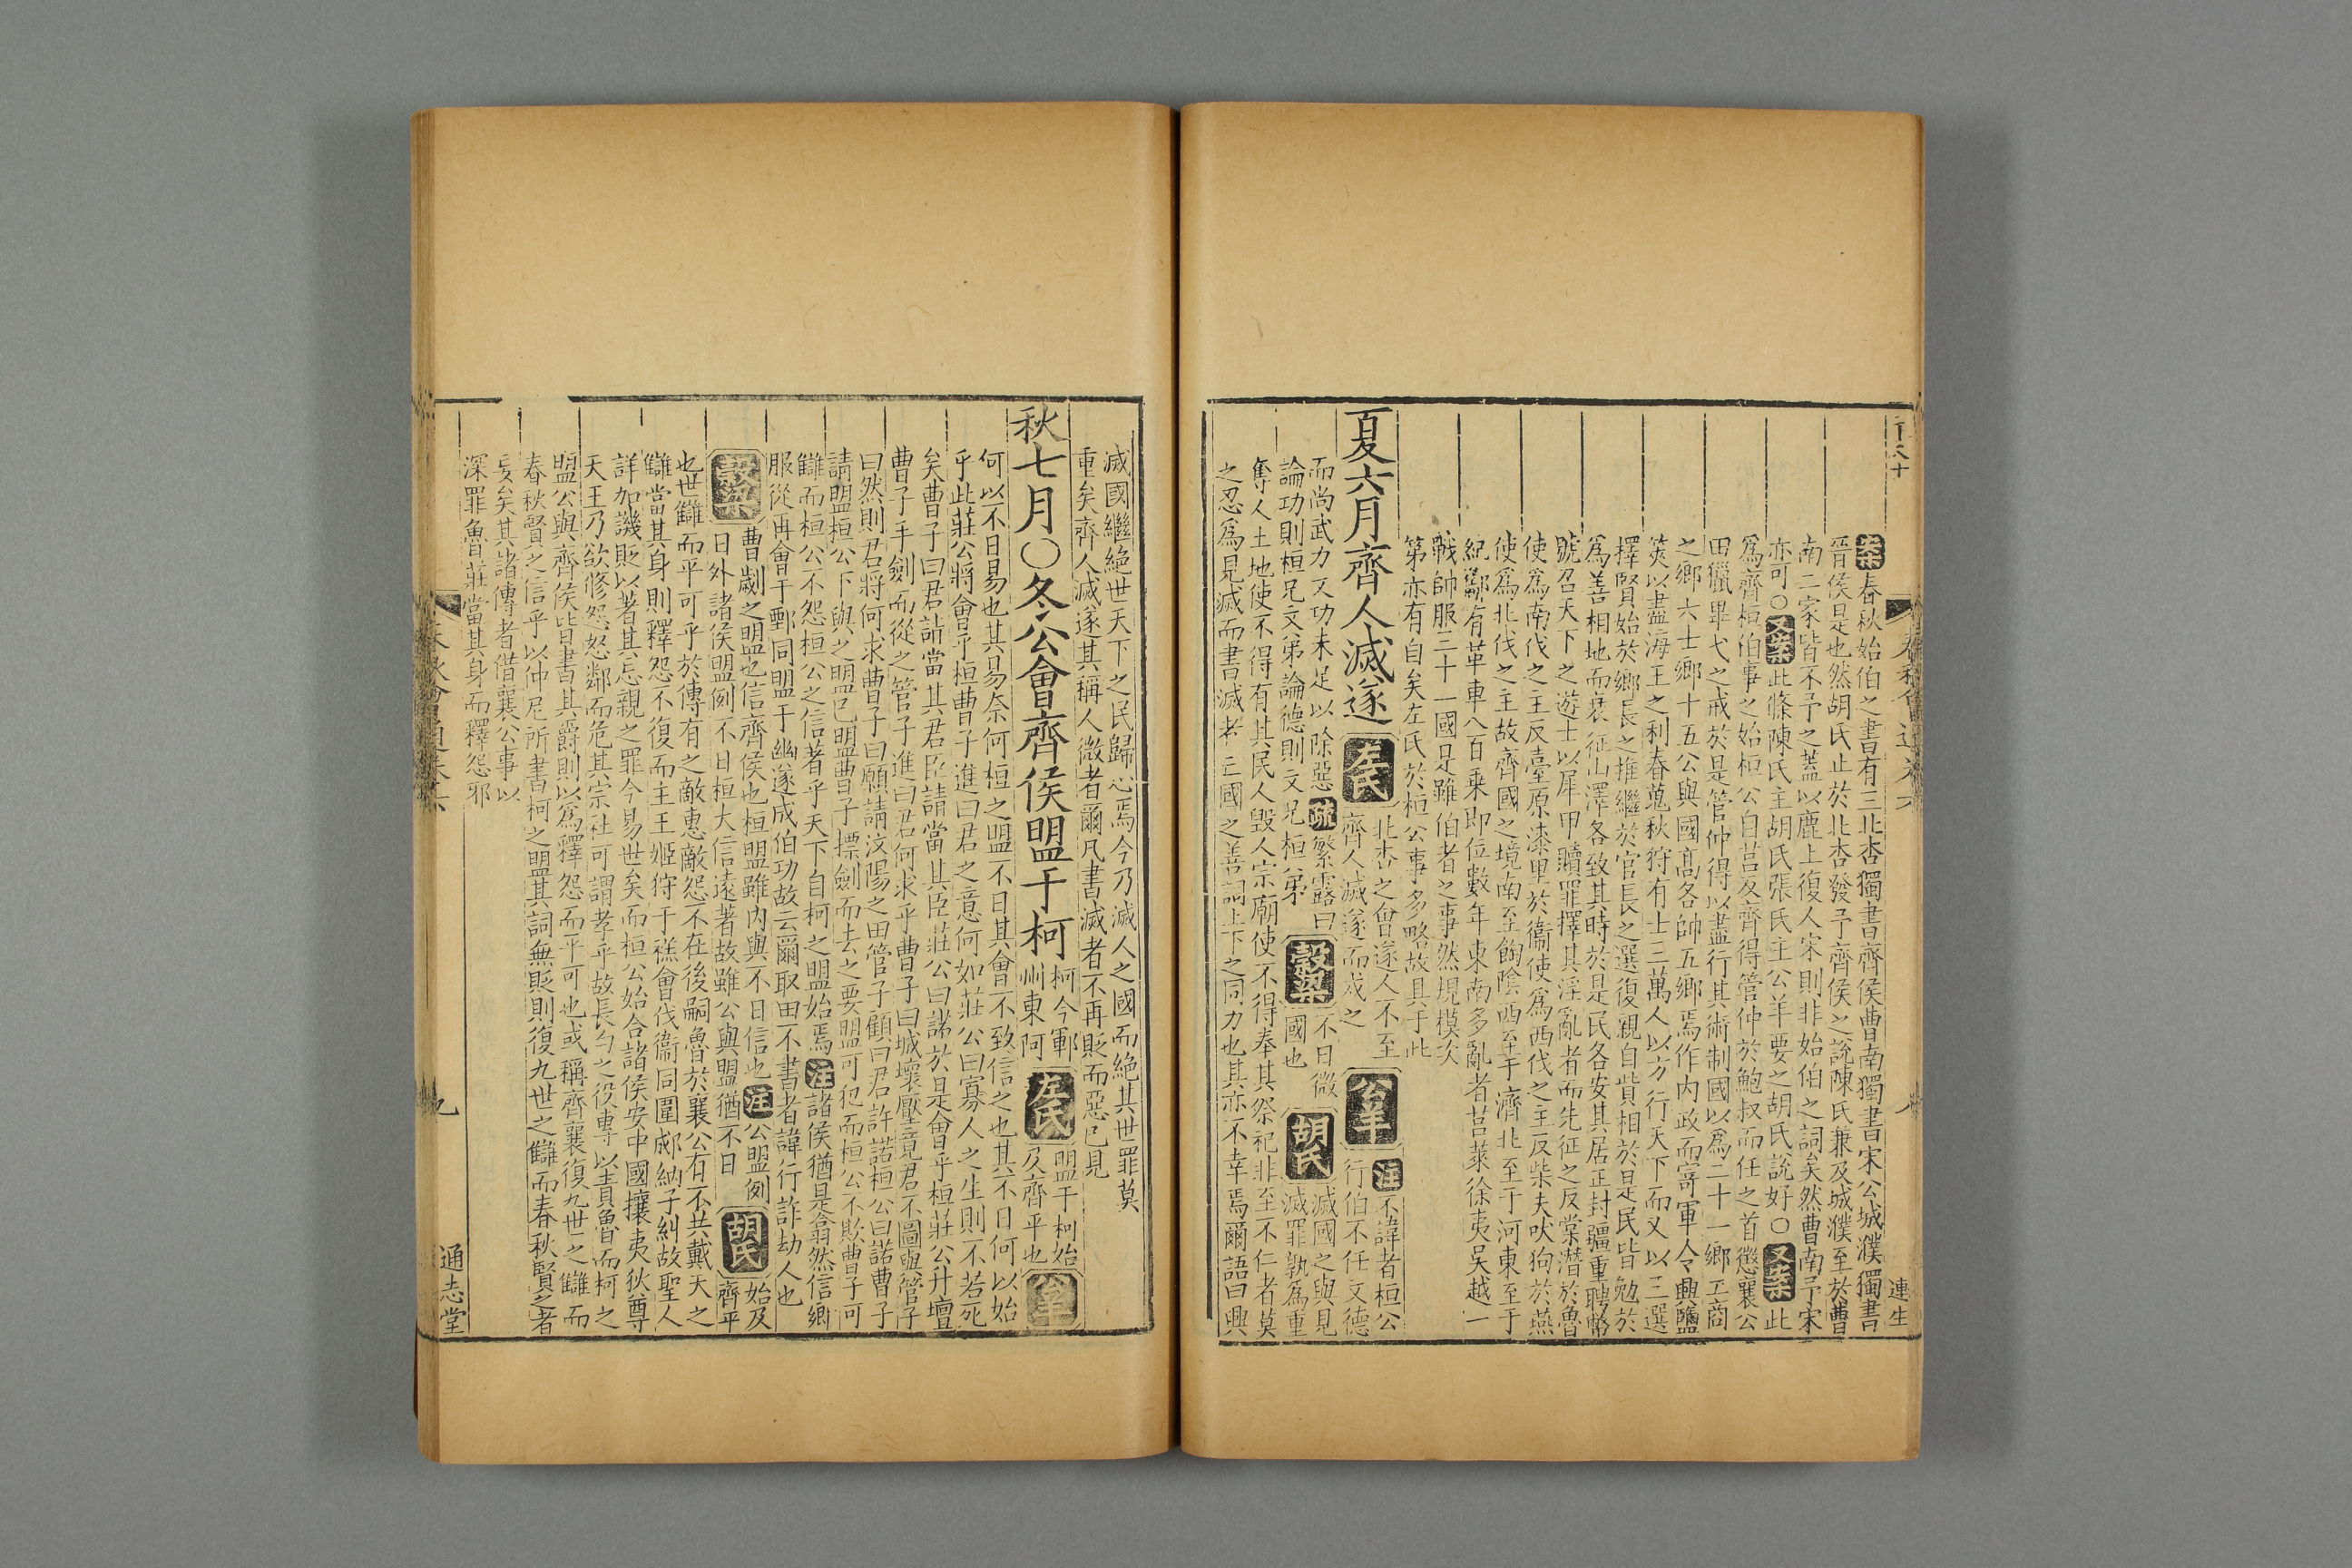 案春秋始伯之書有三北杏獨書齊侯曹南獨書宋公城濮獨書
晉侯是也然胡氏止於北杏發予齊侯之說陳氏兼及城濮至於曹
南二家皆不予之蓋以鹿上復人宋則非始伯之詞矣然曹南予宋
亦可○又案此條陳氏主胡氏張氏主公羊要之胡氏說好○又案此
爲齊桓伯事之始桓公自莒反齊得管仲於鮑叔而任之首懲襄公
田獵畢弋之戒於是管仲得以盡行其術制國以爲二十一鄉工商
之鄉六士鄉十五公與國高各帥五鄉焉作內政而寄軍令興鹽
筴以盡海王之利春蒐秋狩有士三萬人以方行天下而又以三選
擇賢始於鄉長之推繼於官長之選復親自訾相於是民皆勉於
爲善相地而衰征山澤各致其時於是民各安其居正封疆重聘幣
號召天下之遊士以犀甲贖罪擇其淫亂者而先征之反棠潛於魯
使爲南伐之主反臺原漆里於衞使爲西伐之主反柴夫吠狗於燕
使爲北伐之主故齊國之境南至餉陰西至于濟北至于河東至于
紀酅有革車八百乘即位數年東南多亂者莒萊徐夷吳越一
戰帥服三十一國是雖伯者之事然規模次
第亦有自矣左氏於桓公事多略故具于此
夏六月齊人滅遂 左氏 北杏之會遂人不至齊人滅遂而戍之 公羊 注不諱者桓公行伯不任文德
而尚武力又功未足以除惡疏繁露曰論功則桓兄文弟論德則文兄桓弟 穀梁 不日微國也 胡氏 滅國之與見滅罪孰爲重
奪人土地使不得有其民人毀人宗廟使不得奉其祭祀非至不仁者莫
之忍爲見滅而書滅者亡國之善詞上下之同力也其亦不幸焉爾語曰興
春秋會通卷六
八
連生
滅國繼絕世天下之民歸心焉今乃滅人之國而絕其世罪莫
重矣齊人滅遂其稱人微者爾凡書滅者不再貶而惡已見
秋七月○冬公會齊侯盟于柯 柯今鄆州東阿 左氏 盟于柯始及齊平也 公羊
何以不日易也其易奈何桓之盟不日其會不致信之也其不日何以始
乎此莊公將會乎桓曹子進曰君之意何如莊公曰寡人之生則不若死
矣曹子曰君請當其君臣請當其臣莊公曰諾於是會乎桓莊公升壇
曹子手劍而從之管子進曰君何求乎曹子曰城壞壓竟君不圖與管子
曰然則君將何求曹子曰願請汶陽之田管子顧曰君許諾桓公曰諾曹子
請盟桓公下與之盟已盟曹子摽劍而去之要盟可犯而桓公不欺曹子可
讎而桓公不怨桓公之信著乎天下自柯之盟始焉注諸侯猶是翕然信鄉
服從再會于鄄同盟于幽遂成伯功故云爾取田不書者諱行詐劫人也
穀梁 曹劌之盟也信齊侯也桓盟雖內與不日信也注公盟例日外諸侯盟例不日桓大信遠著故雖公與盟猶不日 胡氏 始及齊平
也世讎而平可乎於傳有之敵惠敵怨不在後嗣魯於襄公有不共戴天之
讎當其身則釋怨不復而主王姬狩于禚會伐衞同圍郕納子糾故聖人
詳加譏貶以著其忘親之罪今易世矣而桓公始合諸侯安中國攘夷狄尊
天王乃欲修怨怒鄰而危其宗社可謂孝乎故長勺之役專以責魯而柯之
盟公與齊侯皆書其爵則以爲釋怨而平可也或稱齊襄復九世之讎而
春秋賢之信乎以仲尼所書柯之盟其詞無貶則復九世之讎而春秋賢之者
妄矣其諸傳者借襄公事以
深罪魯莊當其身而釋怨邪
春秋會通卷六
九
通志堂